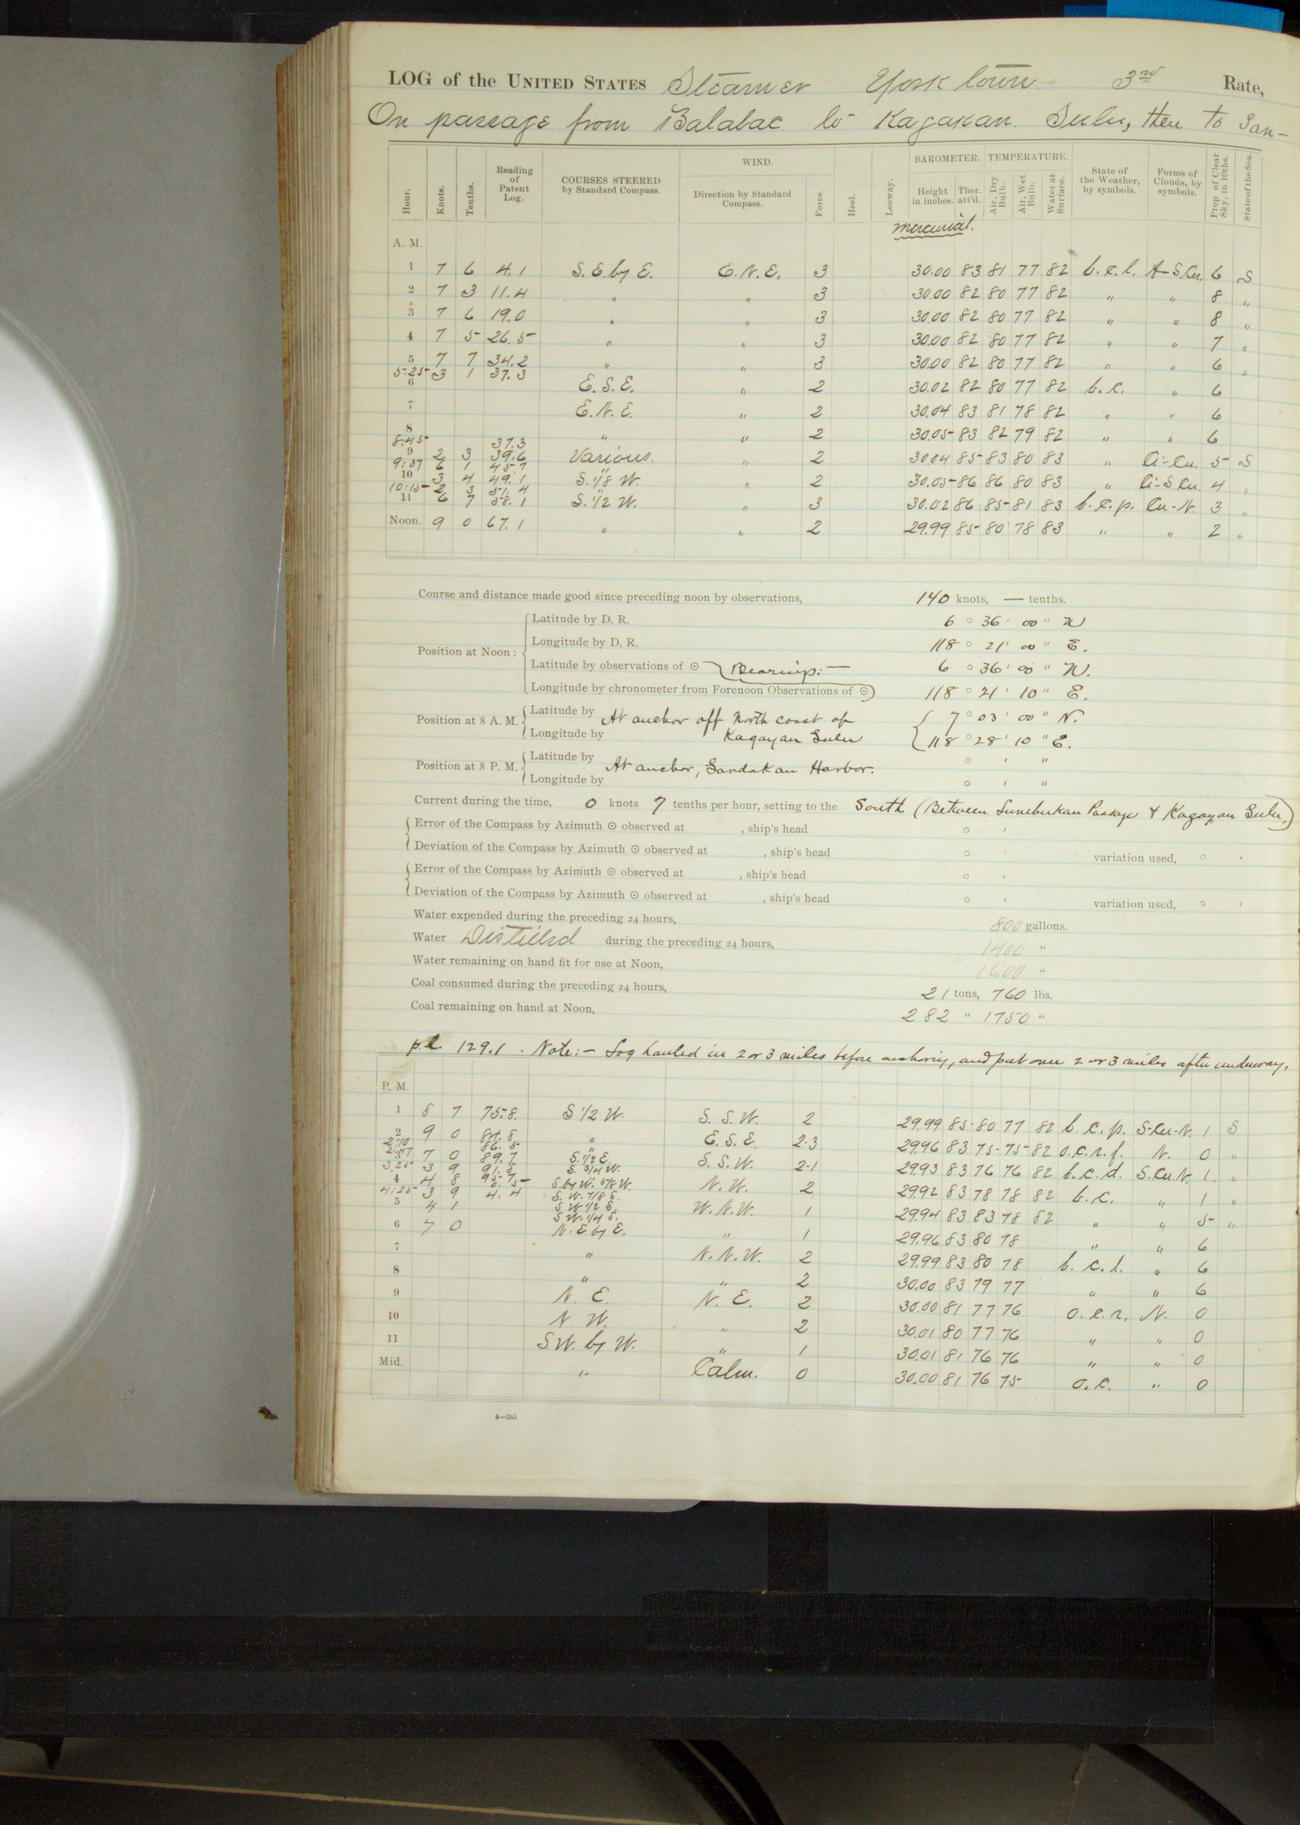 LOG of the UNITED STATES Steamer Yorktown 3rd Rate,
On passage from Balabac to Kagakan Sulu, then to San-
Hour. Knots. Tenths. Reading of Patent Log. COURSES STEERED by Standard Compass. WIND. Direction by Standard Compass. Force. Heel. Leeway. BAROMETER. Height in inches. Ther. att'd. TEMPERATURE. Air, Dry Bulb. Air, Wet Bulb. Water at Surface. State of the Weather, by symbols. Forms of Clouds, by symbols. Prop. of Clear Sky, in 10ths. State of the Sea.
mercurial.
A. M.
1 7 6 4.1 S.E. by E. E.N.E. 3 30.00 83 81 77 82 b.c.l. A-S.Cu. 6 S
2 7 3 11.4 " " 3 30.00 82 80 77 82 " " 8 "
3 7 6 19.0 " " 3 30.00 82 80 77 82 " " 8 "
4 7 5 26.5 " " 3 30.00 82 80 77 82 " " 7 "
5 7 7 34.2 " " 3 30.00 82 80 77 82 " " 6 "
5-25 3 1 37.3
6 E.S.E. " 2 30.02 82 80 77 82 b.c. " 6
7 E.N.E. " 2 30.04 83 81 78 82 " " 6
8 " " 2 30.05 83 82 79 82 " " 6
8:45 37.3
9 2 3 39.6 Various. " 2 30.04 85 83 80 83 " Ci-Cu. 5 S
9:37 6 1 45.7 "
10 3 4 49.1 S. 1/8 W. " 2 30.05 86 86 80 83 " Ci-S.Cu. 4 "
10:15 2 3 51.4 "
11 6 7 58.1 S. 1/2 W. " 3 30.02 86 85 81 83 b.c.p. Cu-N. 3 "
Noon. 9 0 67.1 " " 2 29.99 85 80 78 83 " " 2 "
Course and distance made good since preceding noon by observations, 140 knots, — tenths.
Position at Noon:
Latitude by D. R. 6 ° 36 ' 00 " N
Longitude by D. R. 118 ° 21 ' 00 " E.
Latitude by observations of ☉ Bearings:— 6 ° 36 ' 00 " N.
Longitude by chronometer from Forenoon Observations of ☉ 118 ° 21 ' 10 " E.
Position at 8 A. M. Latitude by At anchor off North coast of 7 ° 03 ' 00 " N.
Longitude by Kagayan Sulu 118 ° 28 ' 10 " E.
Position at 8 P. M. Latitude by At anchor, Sandakan Harbor. ° ' "
Longitude by ° ' "
Current during the time, 0 knots 7 tenths per hour, setting to the South (Between Sumbukan Passage & Kagayan Sulu.)
Error of the Compass by Azimuth ☉ observed at , ship's head ° '
Deviation of the Compass by Azimuth ☉ observed at , ship's head ° ' variation used, ° '
Error of the Compass by Azimuth ☉ observed at , ship's head ° '
Deviation of the Compass by Azimuth ☉ observed at , ship's head ° ' variation used, ° '
Water expended during the preceding 24 hours, 800 gallons.
Water Distilled during the preceding 24 hours, 1400 "
Water remaining on hand fit for use at Noon, 1600 "
Coal consumed during the preceding 24 hours, 21 tons, 760 lbs.
Coal remaining on hand at Noon, 282 " 1750 "
p.l. 129.1. Note:- Log hauled in 2 or 3 miles before anchoring, and put over 2 or 3 miles after underway.
P. M.
1 8 7 75.8 S 1/2 W. S.S.W. 2 29.99 85 80 77 82 b.c.p. S-Cu-N. 1 S
2 9 0 84.8 " E.S.E. 2-3 29.96 83 75 75 82 o.c.r.f. N. 0 "
2:10 86.5 "
2:57 7 0 89.7 S. 1/2 E. S.S.W. 2-1 29.93 83 76 76 82 b.c.d. S.Cu.N. 1 "
3:25 3 9 91.8 S. 3/4 W.
4 4 8 95.7 S. by W. 5/8 W. N.W. 2 29.92 83 78 78 82 b.c. " 1 "
4:25 3 9 4.4 S.W. 7/8 S.
5 4 1 S.W. 1/2 S. W.N.W. 1 29.94 83 83 78 82 " " 5 "
S.W. 1/4 S.
6 7 0 N.E. by E. " 1 29.96 83 80 78 " " 6
7 " N.N.W. 2 29.99 83 80 78 b.c.l. " 6
8 " " 2 30.00 83 79 77 " " 6
9 N.E. N.E. 2 30.00 81 77 76 o.c.r. N. 0
10 N.W. " 2 30.01 80 77 76 " " 0
11 S.W. by W. " 1 30.01 81 76 76 " " 0
Mid. " Calm. 0 30.00 81 76 75 o.c. " 0
4—265